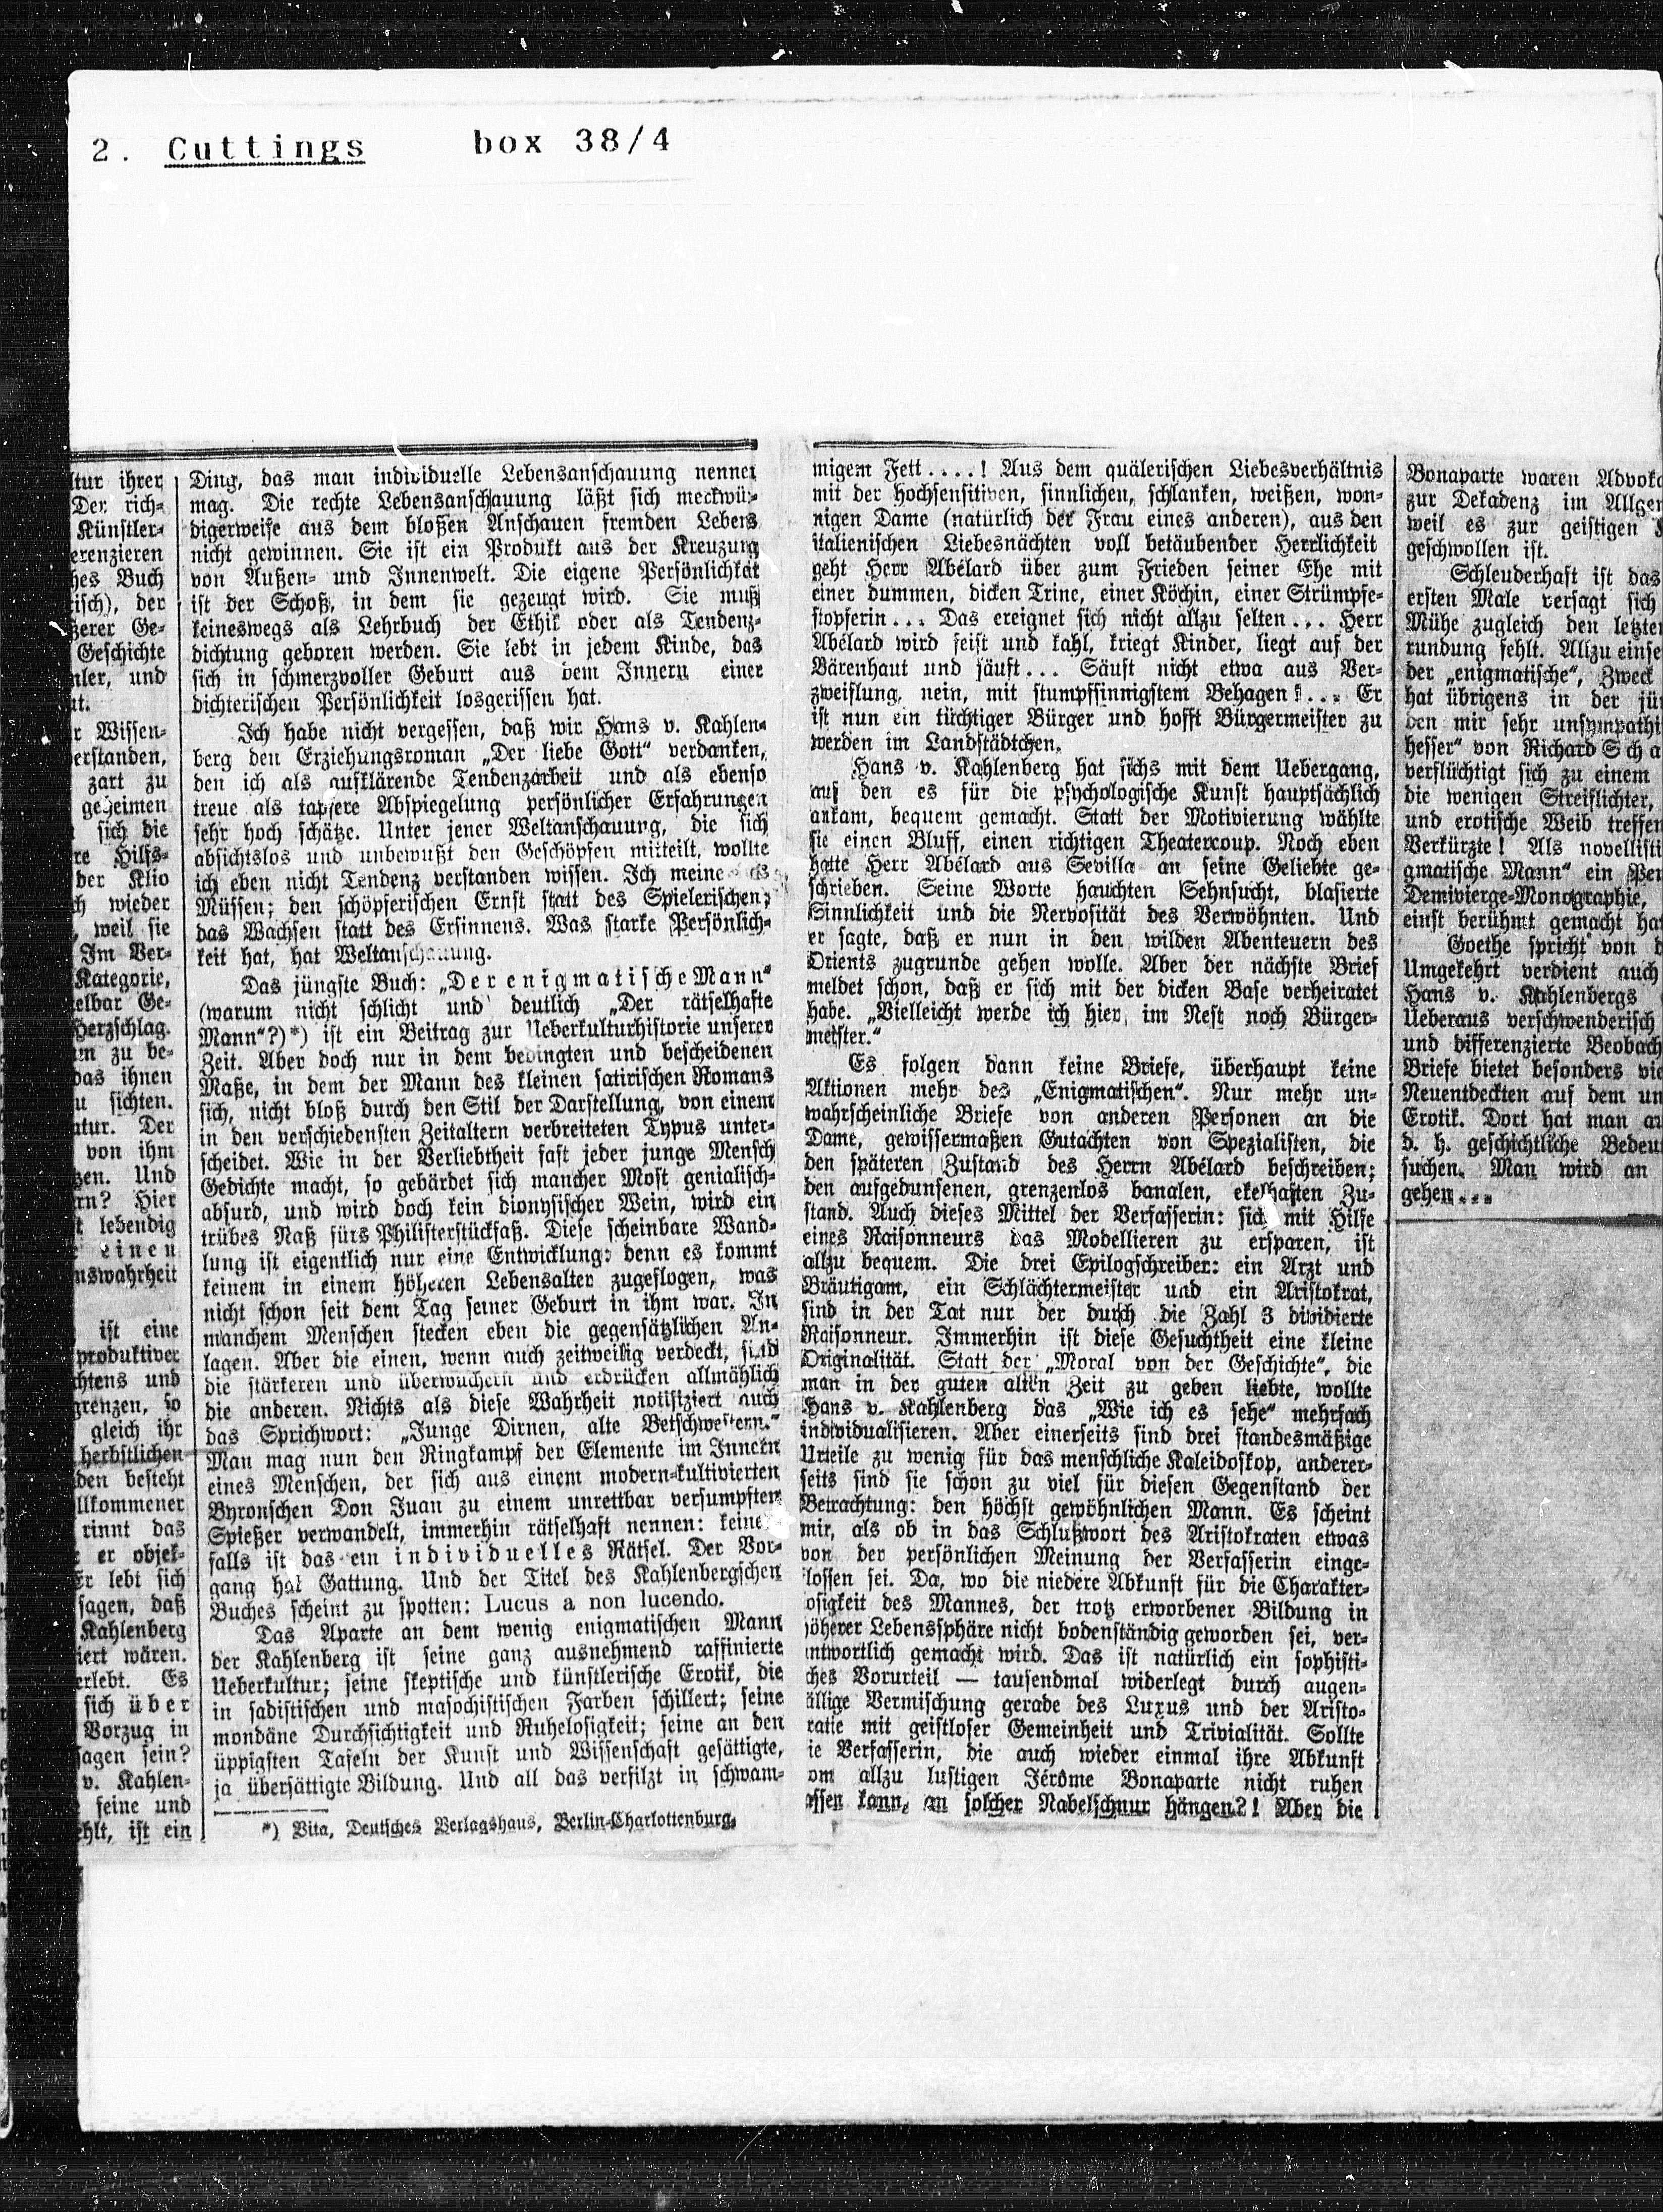 2. Cuttings box 38/4
ltur ihrer
Der rich-
Künstler-
erenzieren
hes Buch
isch), der
ßerer Ge-
Geschichte
nler, und
ut.
r Wissen-
erstanden,
zart zu
geheimen
sich die
re Hilfs-
der Klio
ch wieder
, weil sie
Im Ver-
Kategorie,
elbar Ge-
Herzschlag.
um zu be-
das ihnen
u sichten.
atur. Der
von ihm
zen. Und
rn? Hier
t lebendig
einen
nswahrheit
ist eine
produktiver
chtens und
grenzen, so
gleich ihr
herbstlichen
den besteht
llkommener
rinnt das
er objek-
Er lebt sich
sagen, daß
Kahlenberg
iert wären.
erlebt. Es
sich über
Vorzug in
sagen sein?
v. Kahlen-
feine und
ehlt, ist ein
Ding, das man individuelle Lebensanschauung nennen
mag. Die rechte Lebensanschauung läßt sich merkwür-
digerweise aus dem bloßen Anschauen fremden Lebens
nicht gewinnen. Sie ist ein Produkt aus der Kreuzung
von Außen- und Innenwelt. Die eigene Persönlichkeit
ist der Schoß, in dem sie gezeugt wird. Sie muß
keineswegs als Lehrbuch der Ethik oder als Tendenz-
dichtung geboren werden. Sie lebt in jedem Kinde, das
sich in schmerzvoller Geburt aus dem Innern einer
dichterischen Persönlichkeit losgerissen hat.
Ich habe nicht vergessen, daß wir Hans v. Kahlen-
berg den Erziehungsroman „Der liebe Gott“ verdanken,
den ich als aufklärende Tendenzarbeit und als ebenso
treue als tapfere Abspiegelung persönlicher Erfahrungen
sehr hoch schätze. Unter jener Weltanschauung, die sich
absichtslos und unbewußt den Geschöpfen mitteilt, wollte
ich eben nicht Tendenz verstanden wissen. Ich meine das
Müssen; den schöpferischen Ernst statt des Spielerischen;
das Wachsen statt des Ersinnens. Was starke Persönlich-
keit hat, hat Weltanschauung.
Das jüngste Buch: „Der enigmatische Mann“
(warum nicht schlicht und deutlich „Der rätselhafte
Mann“?)*) ist ein Beitrag zur Ueberkulturhistorie unserer
Zeit. Aber doch nur in dem bedingten und bescheidenen
Maße, in dem der Mann des kleinen satirischen Romans
sich, nicht bloß durch den Stil der Darstellung, von einem
in den verschiedensten Zeitaltern verbreiteten Typus unter-
scheidet. Wie in der Verliebtheit fast jeder junge Mensch
Gedichte macht, so gebärdet sich mancher Most genialisch-
absurd, und wird doch kein dionysischer Wein, wird ein
trübes Naß fürs Philisterstückfaß. Diese scheinbare Wand-
lung ist eigentlich nur eine Entwicklung: denn es kommt
keinem in einem höheren Lebensalter zugeflogen, was
nicht schon seit dem Tag seiner Geburt in ihm war. In
manchem Menschen stecken eben die gegensätzlichen An-
lagen. Aber die einen, wenn auch zeitweilig verdeckt, sind
die stärkeren und überwuchern und erdrücken allmählich
die anderen. Nichts als diese Wahrheit notifiziert auch
das Sprichwort: „Junge Dirnen, alte Betschwestern.“
Man mag nun den Ringkampf der Elemente im Innern
eines Menschen, der sich aus einem modern-kultivierten
Byronschen Don Juan zu einem unrettbar versumpften
Spießer verwandelt, immerhin rätselhaft nennen: keines-
falls ist das ein individuelles Rätsel. Der Vor-
gang hat Gattung. Und der Titel des Kahlenbergschen
Buches scheint zu spotten: Lucus a non lucendo.
Das Aparte an dem wenig enigmatischen Mann
der Kahlenberg ist seine ganz ausnehmend raffinierte
Ueberkultur; seine skeptische und künstlerische Erotik, die
in sadistischen und masochistischen Farben schillert; seine
mondäne Durchsichtigkeit und Ruhelosigkeit; seine an den
üppigsten Tafeln der Kunst und Wissenschaft gesättigte,
ja übersättigte Bildung. Und all das verfilzt in schwam-
*) Vita, Deutsches Verlagshaus, Berlin-Charlottenburg.
migem Fett....! Aus dem quälerischen Liebesverhältnis
mit der hochsensitiven, sinnlichen, schlanken, weißen, won-
nigen Dame (natürlich der Frau eines anderen), aus den
italienischen Liebesnächten voll betäubender Herrlichkeit
geht Herr Abélard über zum Frieden seiner Ehe mit
einer dummen, dicken Trine, einer Köchin, einer Strümpfe-
stopferin... Das ereignet sich nicht allzu selten... Herr
Abélard wird feist und kahl, kriegt Kinder, liegt auf der
Bärenhaut und säuft... Säuft nicht etwa aus Ver-
zweiflung, nein, mit stumpfsinnigstem Behagen!... Er
ist nun ein tüchtiger Bürger und hofft Bürgermeister zu
werden im Landstädtchen.
Hans v. Kahlenberg hat sichs mit dem Uebergang,
auf den es für die psychologische Kunst hauptsächlich
ankam, bequem gemacht. Statt der Motivierung wählte
sie einen Bluff, einen richtigen Theatercoup. Noch eben
hatte Herr Abélard aus Sevilla an seine Geliebte ge-
schrieben. Seine Worte hauchten Sehnsucht, blasierte
Sinnlichkeit und die Nervosität des Verwöhnten. Und
er sagte, daß er nun in den wilden Abenteuern des
Orients zugrunde gehen wolle. Aber der nächste Brief
meldet schon, daß er sich mit der dicken Base verheiratet
habe. „Vielleicht werde ich hier im Nest noch Bürger-
meister.“
Es folgen dann keine Briefe, überhaupt keine
Aktionen mehr des „Enigmatischen“. Nur mehr un-
wahrscheinliche Briefe von anderen Personen an die
Dame, gewissermaßen Gutachten von Spezialisten, die
den späteren Zustand des Herrn Abélard beschreiben;
den aufgedunsenen, grenzenlos banalen, ekelhaften Zu-
stand. Auch dieses Mittel der Verfasserin: sich mit Hilfe
eines Raisonneurs das Modellieren zu ersparen, ist
allzu bequem. Die drei Epilogschreiber: ein Arzt und
Bräutigam, ein Schlächtermeister und ein Aristokrat,
sind in der Tat nur der durch die Zahl 3 dividierte
Raisonneur. Immerhin ist diese Gesuchtheit eine kleine
Originalität. Statt der „Moral von der Geschichte“, die
man in der guten alten Zeit zu geben liebte, wollte
Hans v. Kahlenberg das „Wie ich es sehe“ mehrfach
individualisieren. Aber einerseits sind drei standesmäßige
Urteile zu wenig für das menschliche Kaleidoskop, anderer-
seits sind sie schon zu viel für diesen Gegenstand der
Betrachtung: den höchst gewöhnlichen Mann. Es scheint
mir, als ob in das Schlußwort des Aristokraten etwas
von der persönlichen Meinung der Verfasserin einge-
lossen sei. Da, wo die niedere Abkunft für die Charakter-
osigkeit des Mannes, der trotz erworbener Bildung in
höherer Lebenssphäre nicht bodenständig geworden sei, ver-
antwortlich gemacht wird. Das ist natürlich ein sophisti-
ches Vorurteil — tausendmal widerlegt durch augen-
ällige Vermischung gerade des Luxus und der Aristo-
ratie mit geistloser Gemeinheit und Trivialität. Sollte
ie Verfasserin, die auch wieder einmal ihre Abkunft
om allzu lustigen Jérôme Bonaparte nicht ruhen
assen kann, an solcher Nabelschnur hängen?! Aber die
Bonaparte waren Advoka
zur Dekadenz im Allgem
weil es zur geistigen
geschwollen ist.
Schleuderhaft ist das
ersten Male versagt sich
Mühe zugleich den letzten
rundung fehlt. Allzu einse
der „enigmatische“, Zweck
hat übrigens in der jü
den mir sehr unsympathi
hesser“ von Richard Scha
verflüchtigt sich zu einem
die wenigen Streiflichter,
und erotische Weib treffen
Verkürzte! Als novellisti
gmatische Mann“ ein Pen
Demivierge-Monographie,
einst berühmt gemacht hat
Goethe spricht von d
Umgekehrt verdient auch
Hans v. Kahlenbergs
Ueberaus verschwenderisch
und differenzierte Beobach
Briefe bietet besonders vie
Neuentdeckten auf dem un
Erotik. Dort hat man au
d. h. geschichtliche Bedeu
suchen. Man wird an
gehen...